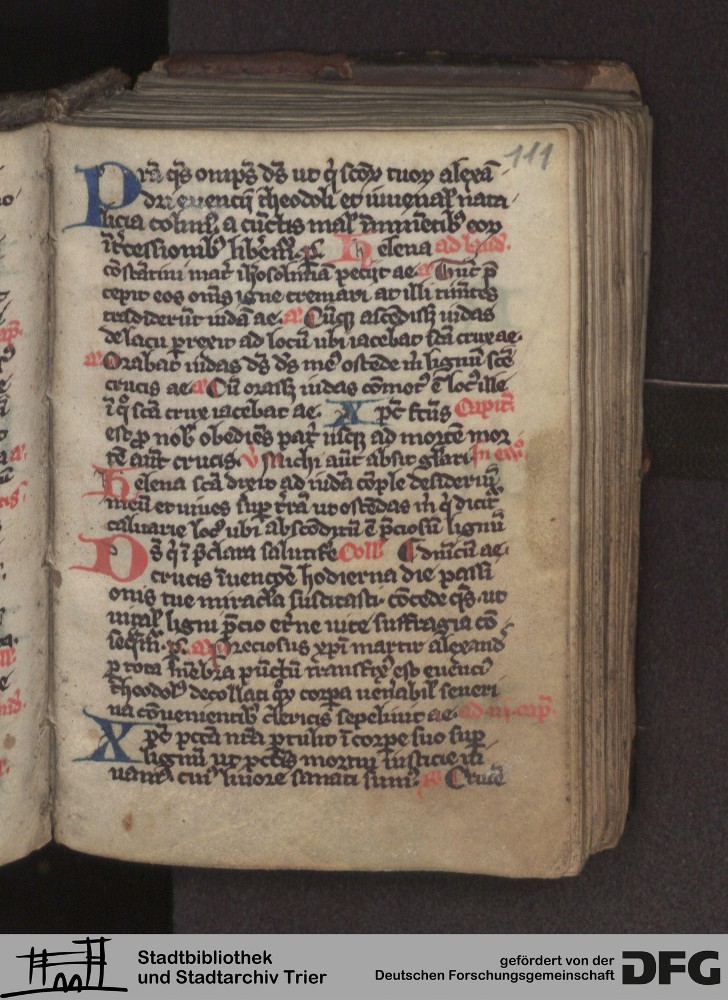 111
Prã q̃s om̃ps ds̃ ut qi scõꝝ tuoꝝ alexã
dri euencij theodoli et iuuenal' nata
licia colim9 a cũctis mal' ĩminẽtib9 eoꝝ
ĩt̃cessionib9 lib̃em᷑. p. Helena ad laud'.
cõstãtini mat̃ iherosolimã peciit ae. a Tũc p̃
cepit eos om̃s igne cremari at illi tim̃tes
tradiderũt iudã ae. a Cũq; ascẽdiss; iudas
de lacu ꝑrexit ad locũ ubi iacebat scã crux ae.
a Orabat iudas ds̃ ds̃ me9 ostẽde m̃ lignũ scẽ
crucis ae a Cũ orass; iudas cõmot9 ẽ loc9 ille
ĩ qo scã crux iacebat ae. Xpc̃ fc̃us Capit'.
est ꝓ nob' obediẽs pat̃ usq; ad mortẽ mor
tẽ aut̃ crucis. v Michi aũt absit gl̃ari In eu
Helena scã dixit ad iudã cõple desideriũ
meũ et uiues suꝑ t̃rã ut ostẽdas m̃ qi dicit᷑
caluarie loc9 ubi abscõditũ ẽ p̃ciosũ lignũ
Ds̃ qi ĩ p̃clara salutife Coll' dñicũ ae.
crucis ĩuencõe hodierna die passi
onis tue miracl'a suscitasti. cõcede q̃s. ut
uital' ligni p̃cio et̃ne uite suffragia cõ
seq̃m᷑. p. a Preciosus xpi martir alexand'
ꝑ tota mẽbra pũctũ transfix9 est euenci9
theodol9 decollati qoꝝ corpa uenabil' seueri
na cõuenientib9 clericis sepeliuit ae. ad
Xpc̃ pctã nrã ꝑtulit ĩ corpe suo suꝑ
lignũ ut pctĩs mortui iusticie ui
uam9 cui9 liuore sanati sum9. Crucẽ
Stadtbibliothek
und Stadtarchiv Trier
gefördert von der
Deutschen Forschungsgemeinschaft
DFG